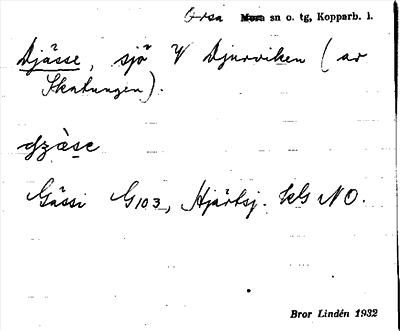 Orsa Mora sn o. tg, Kopparb. l.
Djässe, sjö V Djurviken (av
Skatungen).
Gässi G103, Hjärtsj. kG NO.
Bror Lindén 1932